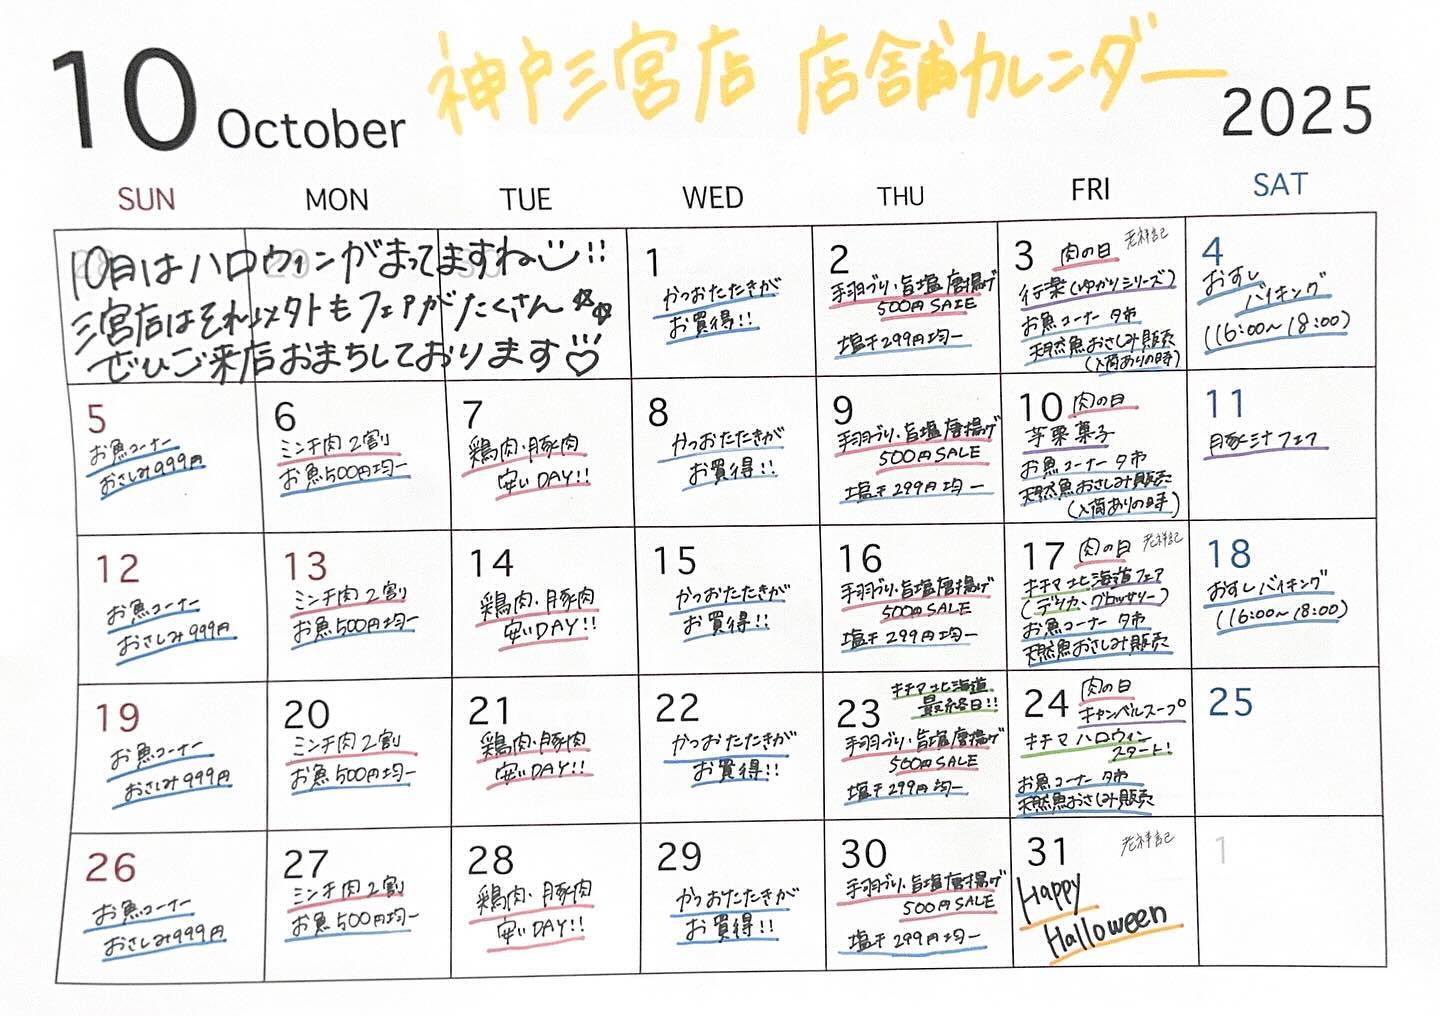 神戸三宮店 店舗カレンダー
10 October
2025
SUN MON TUE WED THU FRI SAT
10月はハロウィンがまってますね!!
三宮店はそれ以外もフェアがたくさん
ぜひご来店おまちしております
1
かつおたたきが
お買得!!
2
手羽づり・旨塩唐揚げ
500円SALE
塩干299円均一
3 肉の日 老祥記
行楽(ゆかりシリーズ)
お魚コーナー夕市
天然魚おさしみ販売
(入荷ありの時)
4
おすし
バイキング
(16:00~18:00)
5
お魚コーナー
おさしみ999円
6
ミンチ肉2割
お魚500円均一
7
鶏肉・豚肉
安いDAY!!
8
かつおたたきが
お買得!!
9
手羽づり・旨塩唐揚げ
500円SALE
塩干299円均一
10 肉の日
芋栗菓子
お魚コーナー夕市
天然魚おさしみ販売
(入荷ありの時)
11
豚汁フェア
12
お魚コーナー
おさしみ999円
13
ミンチ肉2割
お魚500円均一
14
鶏肉・豚肉
安いDAY!!
15
かつおたたきが
お買得!!
16
手羽づり・旨塩唐揚げ
500円SALE
塩干299円均一
17 肉の日 老祥記
キチマ北海道フェア
(デリカ、グロッサリー)
お魚コーナー夕市
天然魚おさしみ販売
18
おすしバイキング
(16:00~18:00)
19
お魚コーナー
おさしみ999円
20
ミンチ肉2割
お魚500円均一
21
鶏肉・豚肉
安いDAY!!
22
かつおたたきが
お買得!!
23 キチマ北海道
最終日!!
手羽づり・旨塩唐揚げ
500円SALE
塩干299円均一
24 肉の日
キャンベルスープ
キチマハロウィン
スタート!
お魚コーナー夕市
天然魚おさしみ販売
25
26
お魚コーナー
おさしみ999円
27
ミンチ肉2割
お魚500円均一
28
鶏肉・豚肉
安いDAY!!
29
かつおたたきが
お買得!!
30
手羽づり・旨塩唐揚げ
500円SALE
塩干299円均一
31 老祥記
Happy
Halloween
1